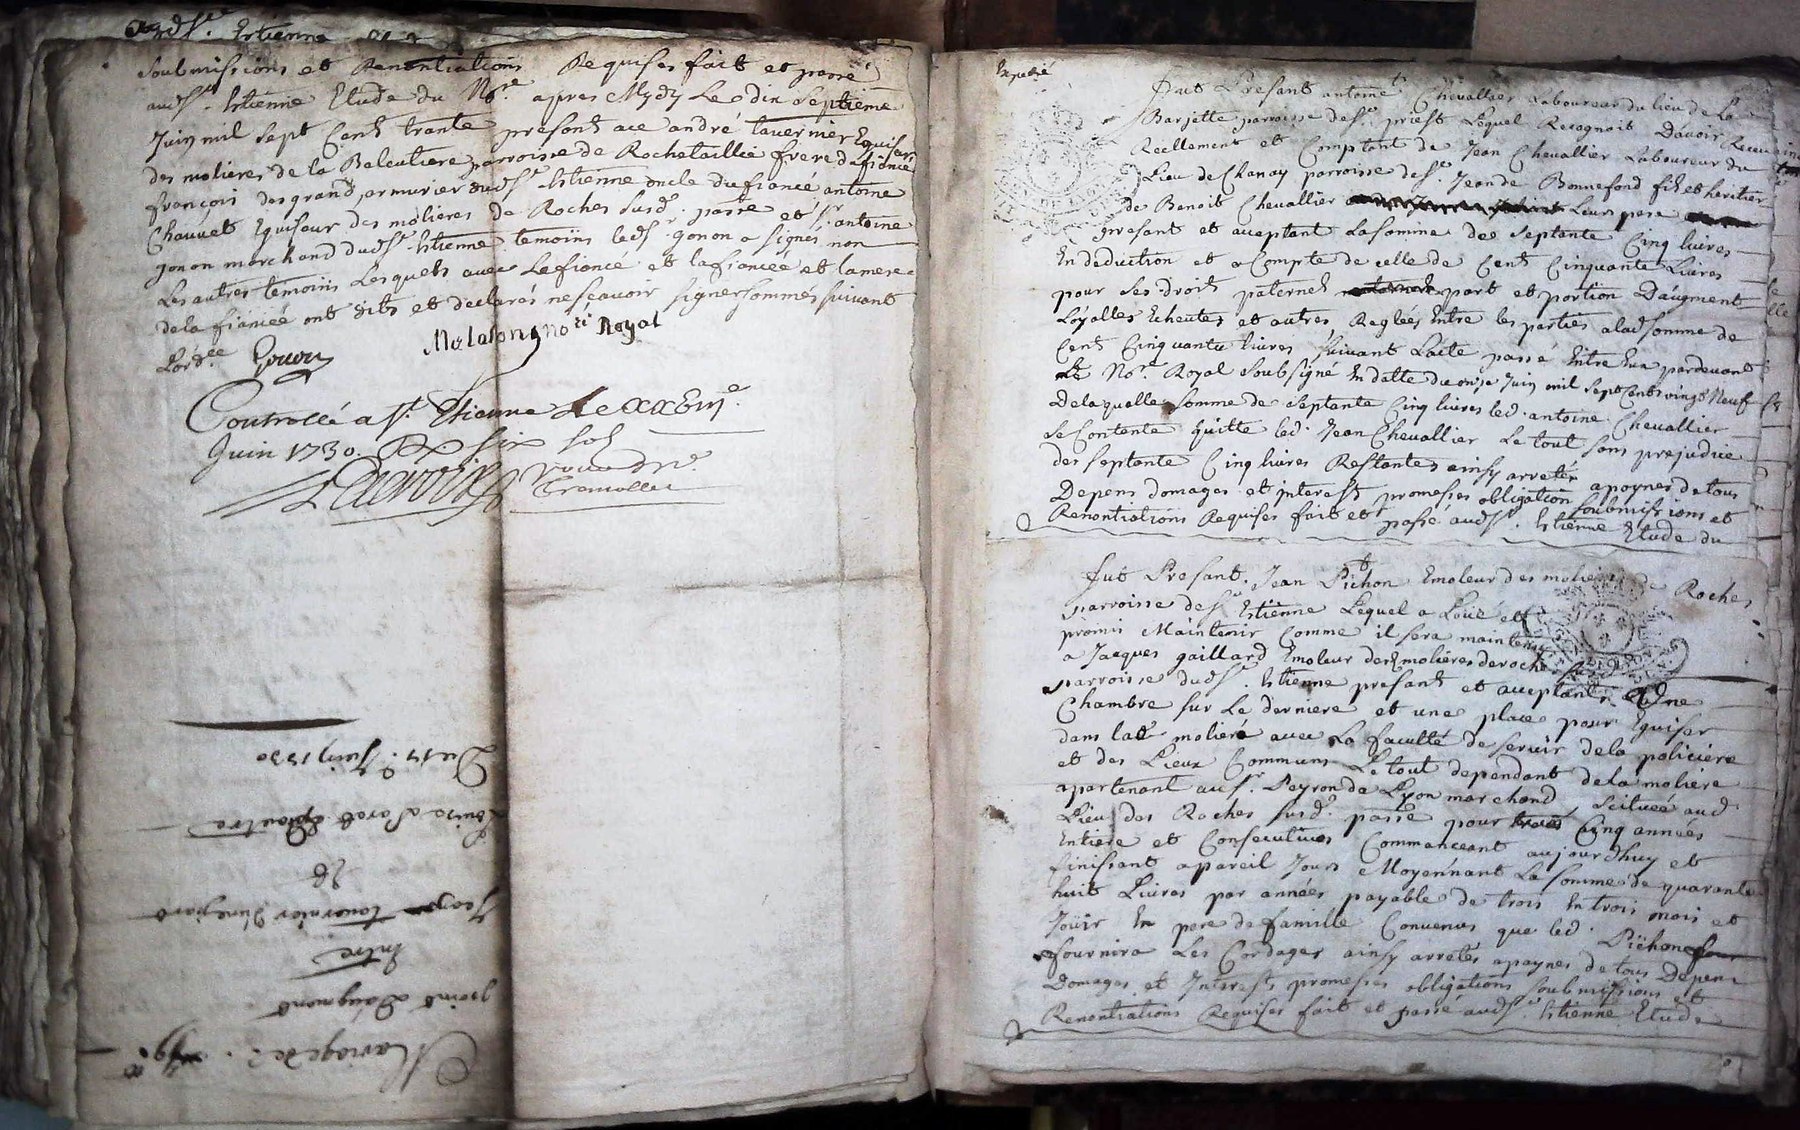 audst. Estienne
soubmissions et Renontiations Requises fait et passé
audst. Estienne Etude du Nore. apres Mydy Le dix septieme
Juin mil sept Cent trante presont ace andré tavernier Eguiseur
des molieres de la Baleutiere parroisse de Rochetaillié frere du fiancé
françois desgrand armurier dudst. Estienne oncle du fiancé antoine
Chauvet Eguiseur des molieres de Roches susd. parre et sr. antoine
gonon marchand dudst. Estienne temoins led. gonon a signés non
Les autres temoins Lesquels avec Le fiancé et la fiancéé et la mere
de la fiancéé ont dits et declarés ne sçavoir signer sommés suivant
Lordce. Gonon
nore Royal
Controllé a St. Etienne Le
Juin 1730. Rx six sols
Delacroix
Expedié
fut Presant antoine Chevallier Laboureur du lieu de la
Barjette parroisse de st. priest Lequel Recognoit Davoir Receu
Reellement et Comptant de Jean Chevallier Laboureur du
Lieu de Chanay parroisse de st. Jean de Bonnefond fils et heritier
de Benoit Chevallier Leur pere
presant et aceptant La somme de septante Cinq livres
En deduction et a Compte de celle de Cent Cinquante Livres
pour ses droits paternels part et portion Daugment
Loyalles Echeutes et autres Reglées Entre les parties a lad. somme de
Cent Cinquante livres suivant Lacte passé Entre Eux pardevant
Le Nore. Royal soubsigné En datte du onze Juin mil sept Cents vingt Neuf
De laquelle somme de septante Cinq livres led. antoine Chevallier
se Contente quitte led. Jean Chevallier Le tout sans prejudice
des septante Cinq livres Restantes ainsy arretés apaynes de tous
Depens domages et interest promesses obligation soubmissions et
Renontiations Requises fait et passé audst. Estienne Etude du
fut Presant Jean Pichon Emoleur des molieres de Roches
parroisse de st. Estienne Lequel a Loué et
promis Maintenir Comme il sera maintenu
a Jacques gaillard Emoleur des Emolieres de roche
parroisse dudst. Estienne presant et aceptant Une
Chambre sur Le derniere et une place pour Eguiser
dans lade moliere avec La faculté de servir de la policiere
et des Lieux Communs Le tout dependant de la moliere
apartenant au sr. Peyron de Lyon marchand scituéé aud.
Lieu des Roches susd. parre pour Cinq années
Entiere et Consecutives Commanceant aujourdhuy et
finissant a pareil Jours Moyennant La somme de quarante
huit Livres par années payable de trois En trois mois et
Jouir En pere de famille Convenus que led. Pichon
fournira Les Cordages ainsy arretés apaynes de tous Depens
Domages et Interests promesses obligations soubmissions et
Renontiations Requises fait et passé audst. Estienne Etude
Mariage de
promis Daugment
Entre
Jean tavernier
Et
Du 17e Juin 1730